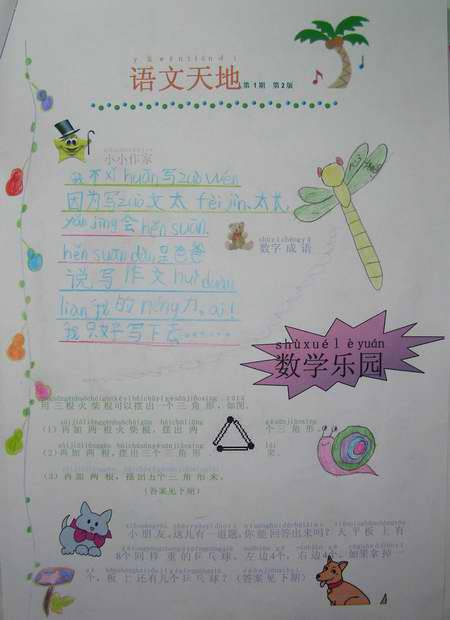 yǔ wén tiān dì
语文天地 第1期 第2版
小小作家
我不xǐ huān写zuò wén
因为写zuò文太fèi jìn.太长
yǎn jīng会hěn suān.
hěn suān dàn是爸爸
说写作文huì duàn
liàn我的néng力,ai!
我只好写下去……
数字成语
shù xué lè yuán
数学乐园
用三根火柴棍可以摆出一个三角形,如图。
(1)再加两根火柴棍,摆出两个三角形。
(2)再加两根,摆出三个三角形来。
(3)再加两根,摆出五个三角形来。
(答案见下期)
小朋友,这儿有一道题,你能回答出来吗?天平板上有
8个同样重的乒乓球。左边4个,右边4个。如果拿掉一
个,板上还有几个乒乓球?(答案见下期)